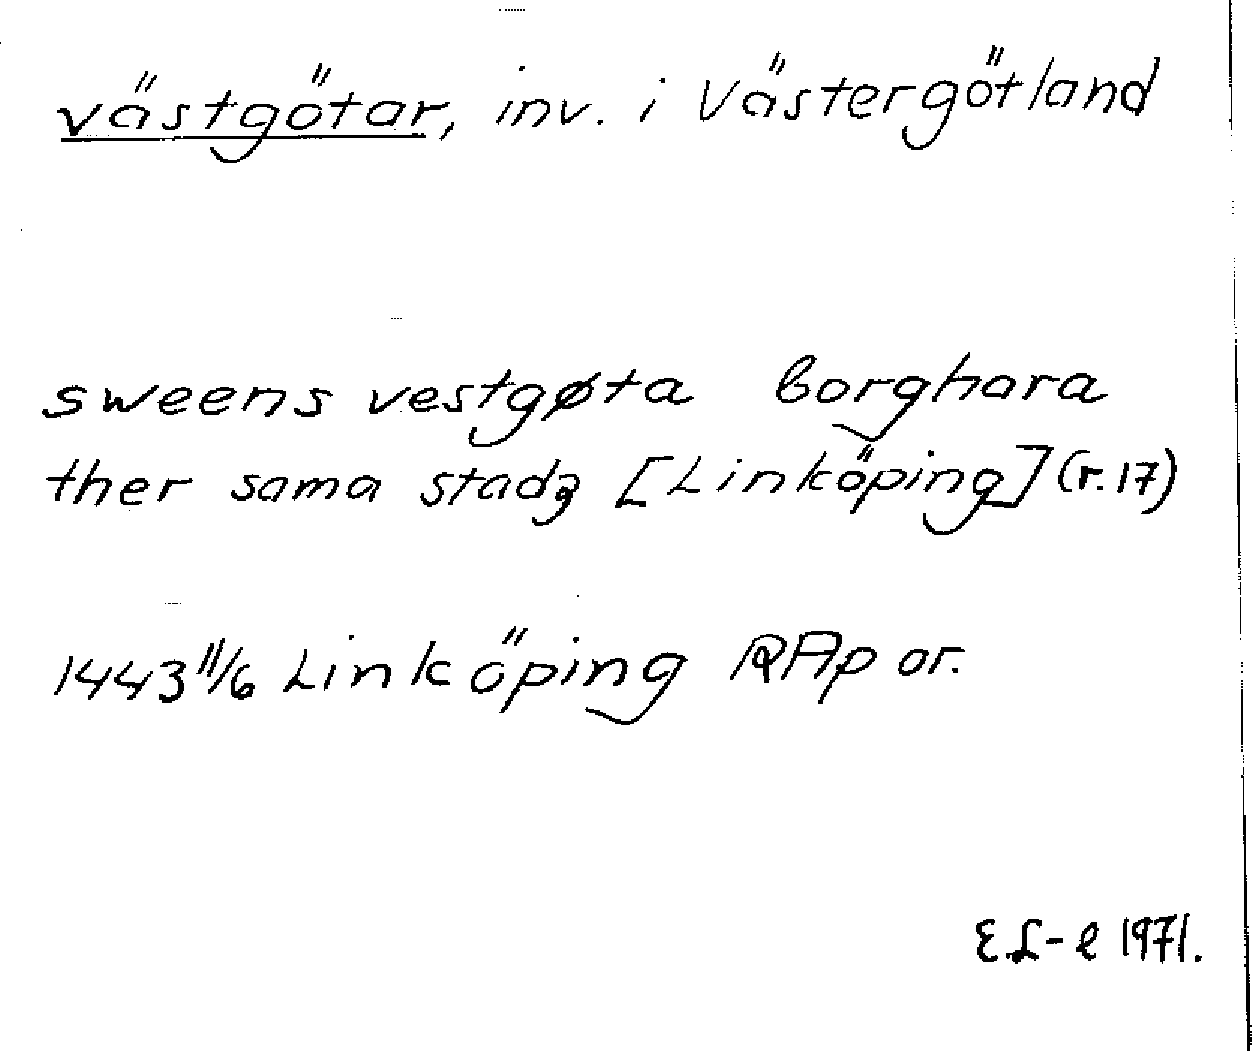 västgötar, inv. i Västergötland
sweens vestgøta borghara
ther sama stadʒ [Linköping] (r. 17)
1443 11/6 Linköping RAp or.
E.L-e 1971.